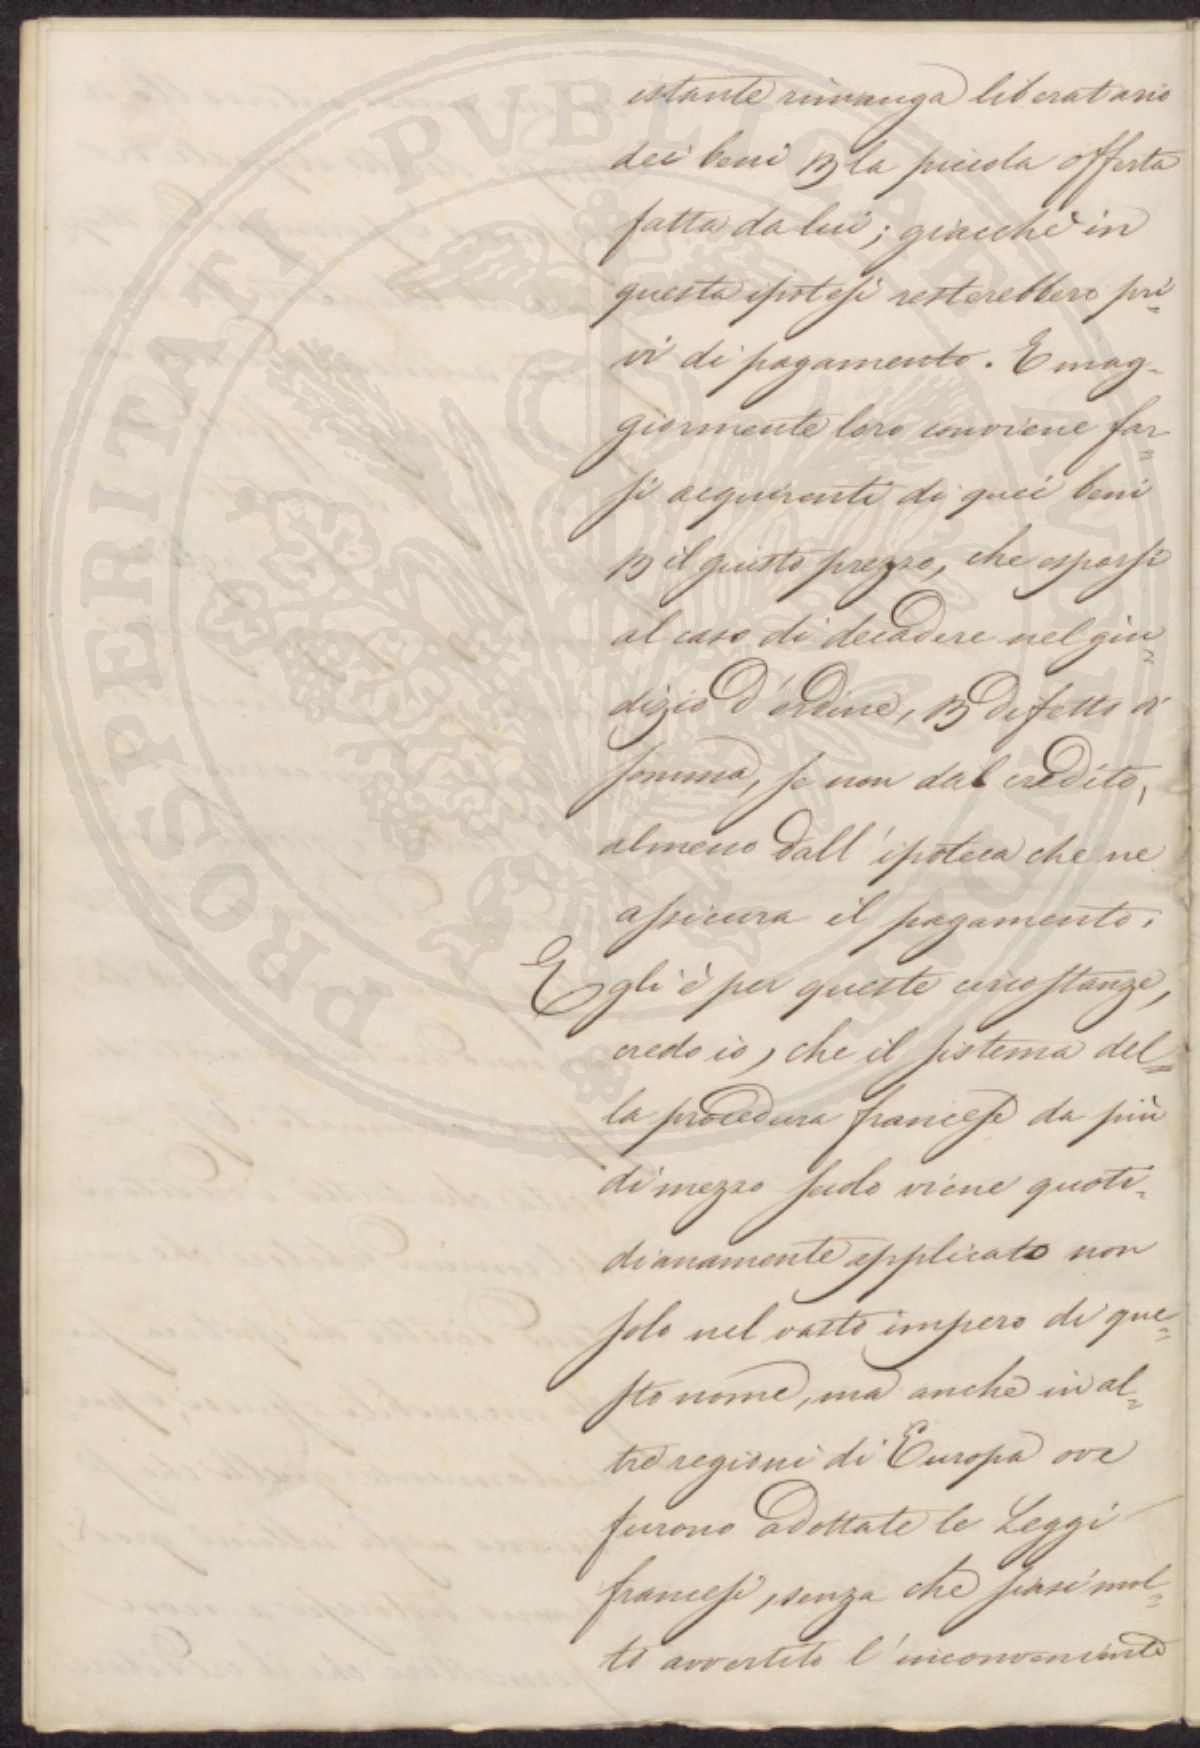 istante rimanga liberatario
dei beni p la piccola offerta
fatta da lui; giacchè in
questa ipotesi resterebbero pri=
vi di pagamento. E mag=
giormente loro conviene far=
si acquirenti di quei beni
p il giusto prezzo, che esporsi
al caso di decadere nel giu=
dizio d'ordine, p difetto di
somma, se non dal credito,
almeno dall'ipoteca che ne
assicura il pagamento.
Egli è per queste circostanze,
credo io, che il sistema del=
la procedura francese da più
di mezzo secolo viene quoti=
dianamente applicato non
solo nel vasto impero di que=
sto nome, ma anche in al=
tre regioni di Europa ove
furono adottate le Leggi
francesi, senza che siasi mol=
to avvertito l'inconveniente
PROSPERITATI PVBLICAE